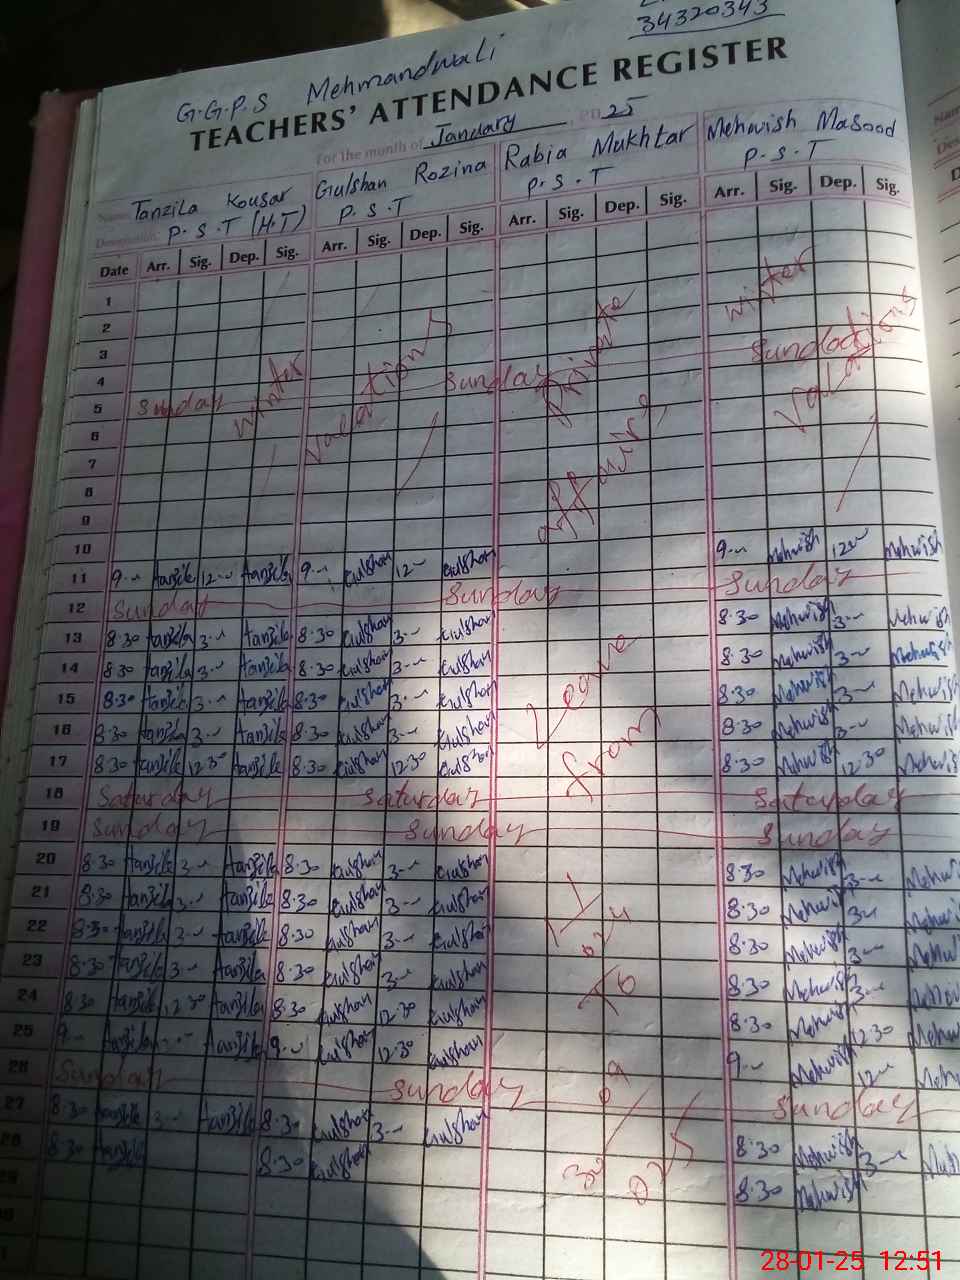 34320343
G.G.P.S Mehmandwali
TEACHERS' ATTENDANCE REGISTER
For the month of Jandary 25
Name Tanzila Kousar Gulshan Rozina Rabia Mukhtar Mehwish Masood
Designation P.S.T (H.T) P.S.T P.S.T P.S.T
Date Arr. Sig. Dep. Sig. Arr. Sig. Dep. Sig. Arr. Sig. Dep. Sig. Arr. Sig. Dep. Sig.
1
2
3
4
5 Sunday Sunday Sunday
winter vacations private affairs winter vacations
6
7
8
9
10
11 9 Tanzila 12 Tanzila 9 Gulshan 12 Gulshan 9 Mehwish 12 Mehwish
12 Sunday Sunday Sunday
13 8.30 Tanzila 3 Tanzila 8.30 Gulshan 3 Gulshan 8.30 Mehwish 3 Mehwish
14 8.30 Tanzila 3 Tanzila 8.30 Gulshan 3 Gulshan 8.30 Mehwish 3 Mehwish
15 8:30 Tanzila 3 Tanzila 8:30 Gulshan 3 Gulshan 8.30 Mehwish 3 Mehwish
16 8.30 Tanzila 3 Tanzila 8.30 Gulshan 3 Gulshan 8.30 Mehwish 3 Mehwish
17 8.30 Tanzila 12.30 Tanzila 8.30 Gulshan 12.30 Gulshan 8.30 Mehwish 12.30 Mehwish
Leave from
18 Saturday Saturday Saturday
19 Sunday Sunday Sunday
20 8.30 Tanzila 3 Tanzila 8.30 Gulshan 3 Gulshan 8.30 Mehwish 3 Mehwish
21 8.30 Tanzila 3 Tanzila 8.30 Gulshan 3 Gulshan 8.30 Mehwish 3 Mehwish
22 8.30 Tanzila 3 Tanzila 8.30 Gulshan 3 Gulshan 8.30 Mehwish 3
23 8.30 Tanzila 3 Tanzila 8.30 Gulshan 3 Gulshan 8.30 Mehwish 3
24 8.30 Tanzila 12.30 Tanzila 8.30 Gulshan 12.30 Gulshan 8.30 Mehwish 12.30
25 9 Tanzila Tanzila 9 Gulshan 12.30 Gulshan 9 Mehwish 12
To
26 Sunday Sunday Sunday
27 8.30 Tanzila 3 Tanzila 8.30 Gulshan 3 Gulshan 8.30 Mehwish 3
28 8.30 Tanzila 8.30 Gulshan 8.30 Mehwish
29
28-01-25 12:51